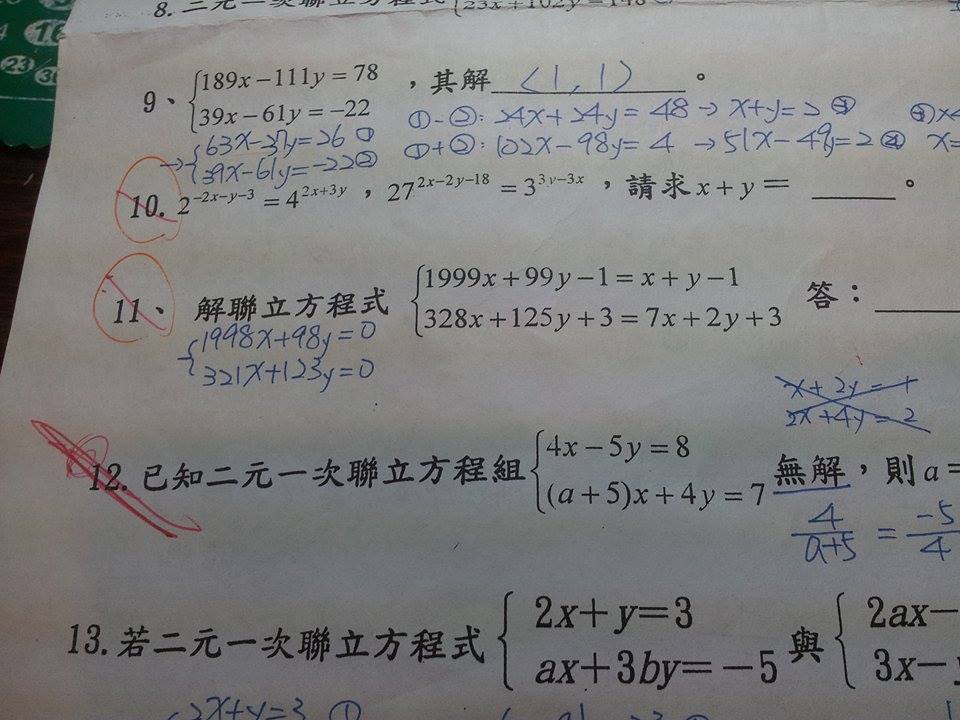 8. 二元一次聯立方程式{23x+102y=148
9、{189x−111y=78
39x−61y=−22 ,其解 (1,1) 。
→{63x-37y=26 ①
39x-61y=-22 ②
①-②: 24x+24y=48 → x+y=2 ③
①+②: 102x-98y=4 → 51x-49y=2 ④
10. 2^{-2x-y-3} = 4^{2x+3y},27^{2x-2y-18} = 3^{3y-3x},請求 x+y= ____ 。
11、 解聯立方程式 {1999x+99y−1=x+y−1
328x+125y+3=7x+2y+3 答:
{1998x+98y=0
321x+123y=0
x+2y=1
2x+4y=2
12. 已知二元一次聯立方程組{4x−5y=8
(a+5)x+4y=7 無解,則 a=
4/(a+5) = -5/4
13. 若二元一次聯立方程式{2x+y=3
ax+3by=−5 與{2ax−
3x−y
{2x+y=3 ①